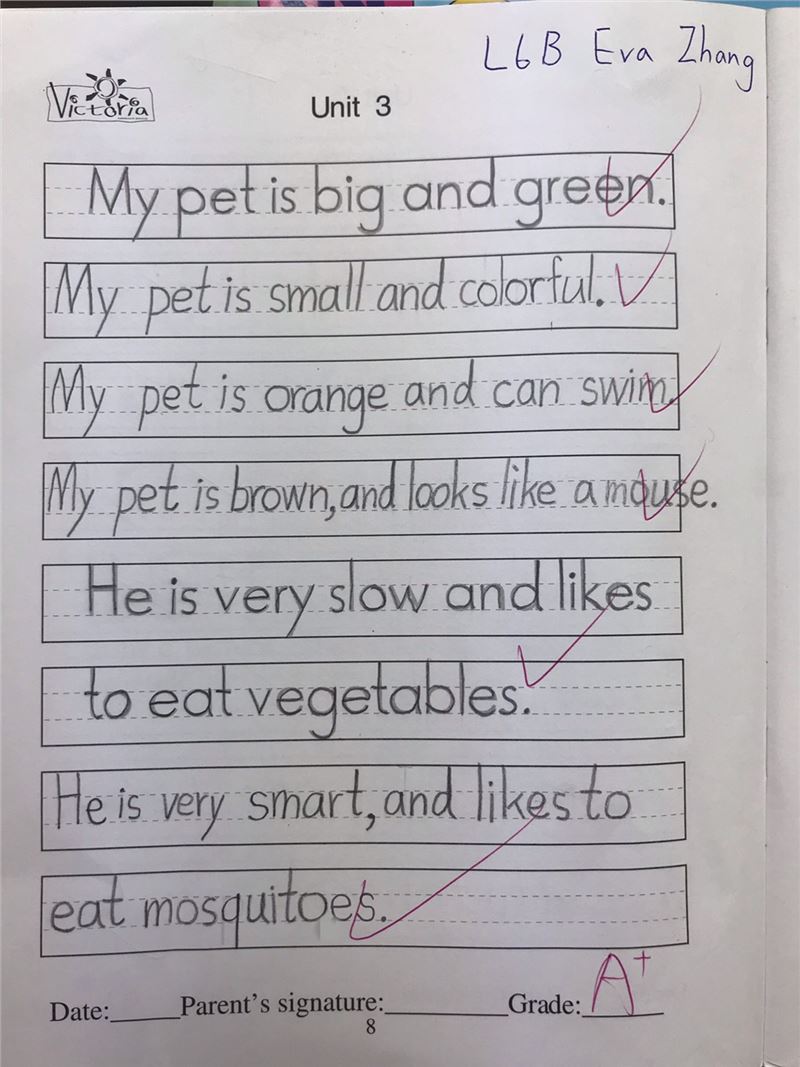 L6B Eva Zhang
Victoria
Unit 3
My pet is big and green.
My pet is small and colorful.
My pet is orange and can swim.
My pet is brown, and looks like a mouse.
He is very slow and likes
to eat vegetables.
He is very smart, and likes to
eat mosquitoes.
Date:_____Parent's signature:_________Grade:A+
8